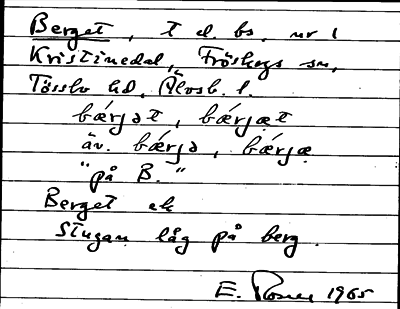 Berget, t el. bs. nr 1
Kristinedal, Fröskogs sn,
Tössbo hd, Älvsb. l.
bǽrjət, bǽrjæt
äv. bǽrjə, bǽrjæ
"på B."
Berget ek
Stugan låg på berg.
E. 1965